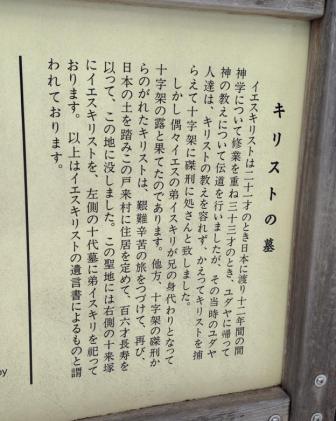 キリストの墓
イエスキリストは二十一才のとき日本に渡り十二年間の間
神学について修業を重ね三十三才のとき、ユダヤに帰って
神の教えについて伝道を行いましたが、その当時のユダヤ
人達は、キリストの教えを容れず、かえってキリストを捕
らえて十字架に磔刑に処さんと致しました。
しかし偶々イエスの弟イスキリが兄の身代わりとなって
十字架の露と果てたのであります。他方、十字架の磔刑か
らのがれたキリストは、艱難辛苦の旅をつづけて、再び、
日本の土を踏みこの戸来村に住居を定めて、百六才長寿を
以って、この地に没しました。この聖地には右側の十来塚
にイエスキリストを、左側の十代墓に弟イスキリを祀って
おります。以上はイエスキリストの遺言書によるものと謂
われております。
by